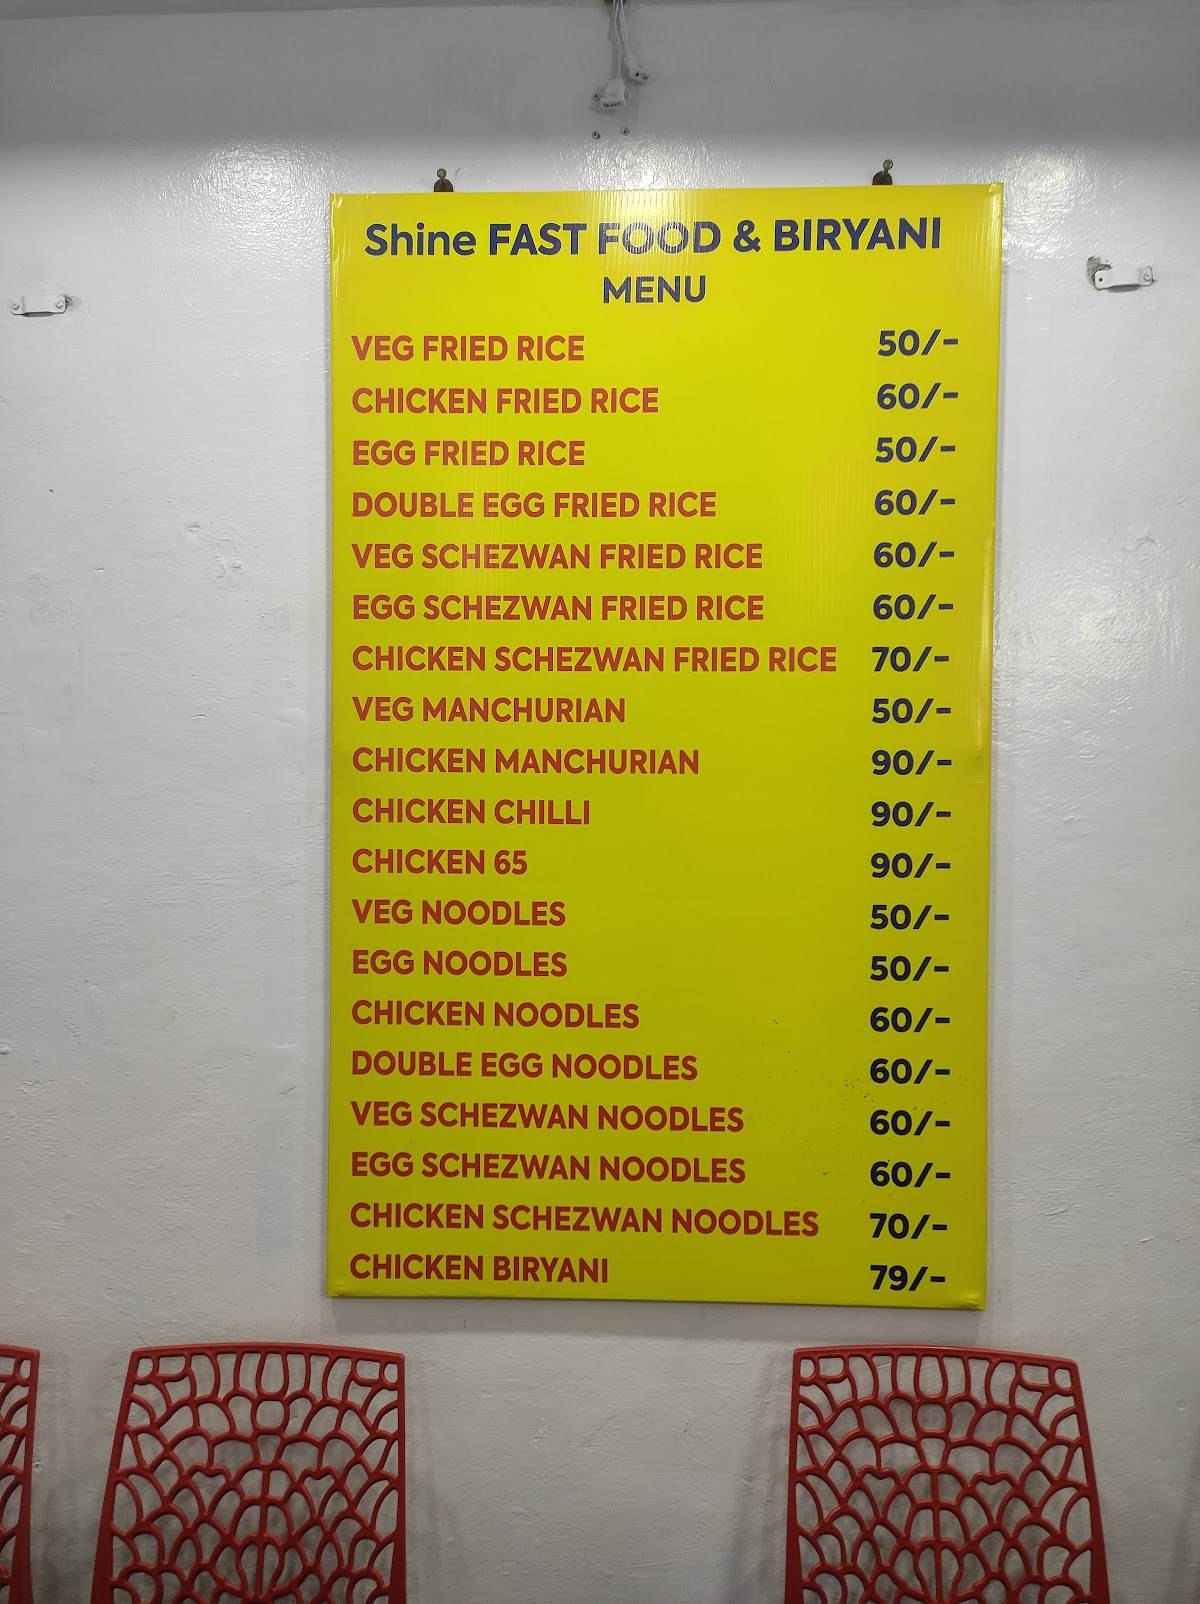 Shine FAST FOOD & BIRYANI
MENU
VEG FRIED RICE 50/-
CHICKEN FRIED RICE 60/-
EGG FRIED RICE 50/-
DOUBLE EGG FRIED RICE 60/-
VEG SCHEZWAN FRIED RICE 60/-
EGG SCHEZWAN FRIED RICE 60/-
CHICKEN SCHEZWAN FRIED RICE 70/-
VEG MANCHURIAN 50/-
CHICKEN MANCHURIAN 90/-
CHICKEN CHILLI 90/-
CHICKEN 65 90/-
VEG NOODLES 50/-
EGG NOODLES 50/-
CHICKEN NOODLES 60/-
DOUBLE EGG NOODLES 60/-
VEG SCHEZWAN NOODLES 60/-
EGG SCHEZWAN NOODLES 60/-
CHICKEN SCHEZWAN NOODLES 70/-
CHICKEN BIRYANI 79/-